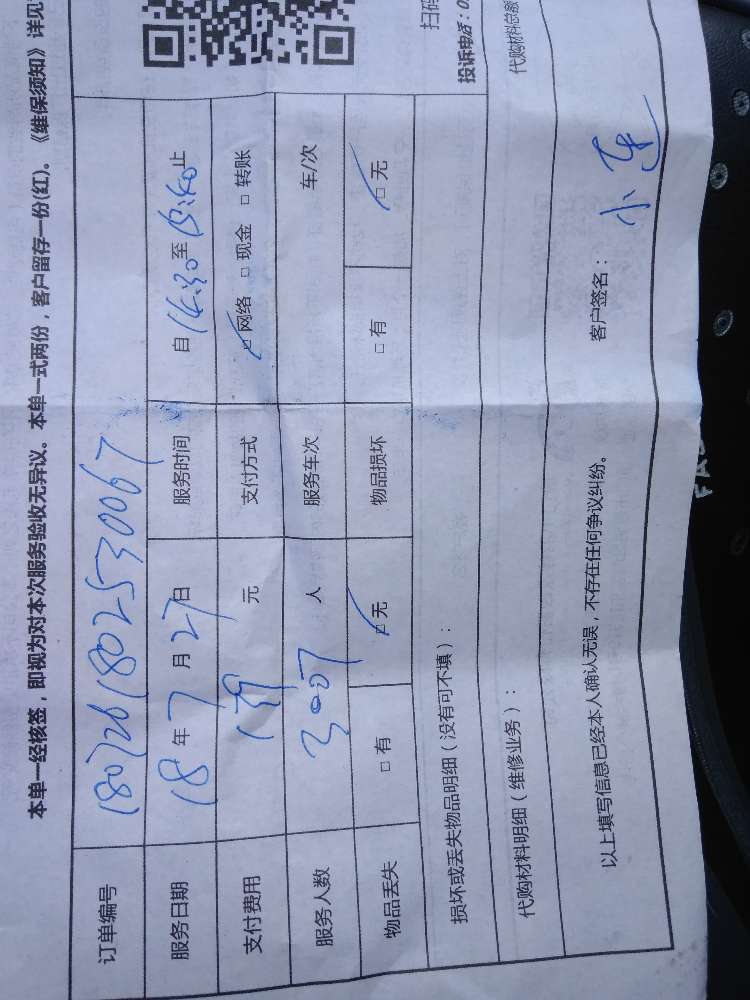 本单一经核签，即视为对本次服务验收无异议。本单一式两份，客户留存一份(红)。《维保须知》详见
扫码
投诉电话：0
代购材料总额
订单编号 180726180253 0067
服务日期 18年7月27日 服务时间 自14:30至15:40止
支付费用 139元 支付方式 □网络 □现金 □转账
服务人数 3007人 服务车次 车/次
物品丢失 □有 □无 物品损坏 □有 □无
损坏或丢失物品明细（没有可不填）：
代购材料明细（维修业务）：
以上填写信息已经本人确认无误，不存在任何争议纠纷。
客户签名：小